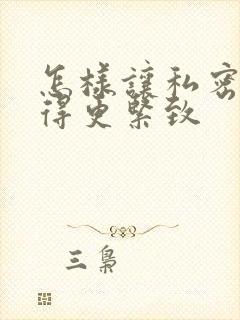 怎樣讓私密
得更緊致
三梟